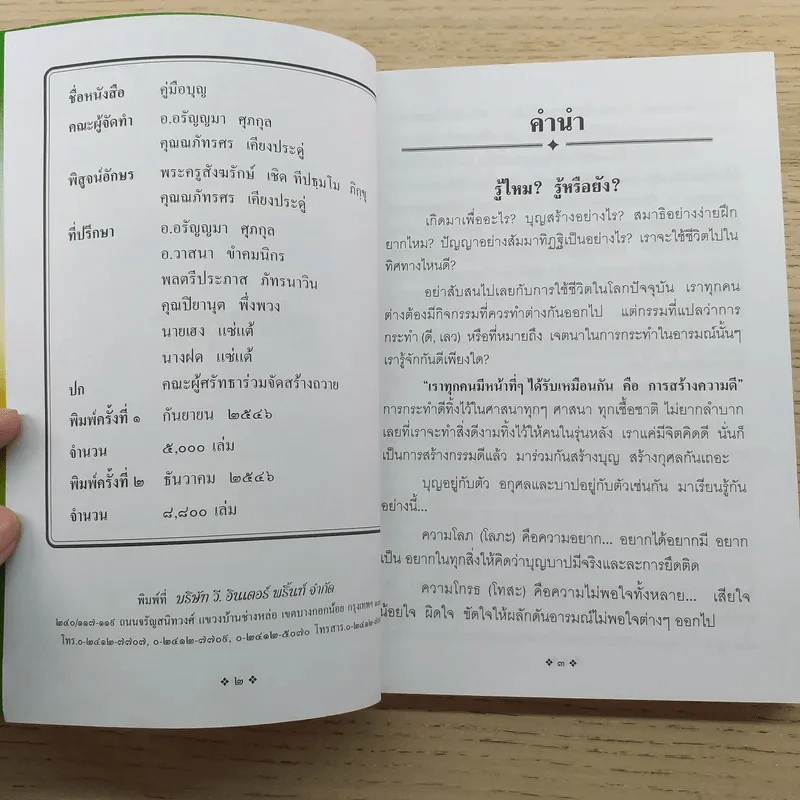 ชื่อหนังสือ คู่มือบุญ
คณะผู้จัดทำ อ.อรัญญมา ศุภกุล
คุณณภัทรศร เคียงประดู่
พิสูจน์อักษร พระครูสังฆรักษ์ เชิด ทีปธฺมโม ภิกฺขุ
คุณณภัทรศร เคียงประดู่
ที่ปรึกษา อ.อรัญญมา ศุภกุล
อ.วาสนา ขำคมนิกร
พลตรีประภาส ภัทรนาวิน
คุณปิยานุต พึ่งพวง
นายเฮง แซ่แต้
นางฝด แซ่แต้
ปก คณะผู้ศรัทธาร่วมจัดสร้างถวาย
พิมพ์ครั้งที่ ๑ กันยายน ๒๕๔๖
จำนวน ๕,๐๐๐ เล่ม
พิมพ์ครั้งที่ ๒ ธันวาคม ๒๕๔๖
จำนวน ๘,๘๐๐ เล่ม
พิมพ์ที่ บริษัท วี. อินเตอร์ พริ้นท์ จำกัด
๒๔๐/๑๑๗-๑๑๙ ถนนจรัญสนิทวงศ์ แขวงบ้านช่างหล่อ เขตบางกอกน้อย กรุงเทพฯ
โทร.๐-๒๔๑๒-๗๗๐๗, ๐-๒๔๑๒-๗๗๐๙, ๐-๒๔๑๒-๕๐๗๐ โทรสาร.๐-๒๔๑๒-
๒
คำนำ
รู้ไหม? รู้หรือยัง?
เกิดมาเพื่ออะไร? บุญสร้างอย่างไร? สมาธิอย่างง่ายฝึก
ยากไหม? ปัญญาอย่างสัมมาทิฏฐิเป็นอย่างไร? เราจะใช้ชีวิตไปใน
ทิศทางไหนดี?
อย่าสับสนไปเลยกับการใช้ชีวิตในโลกปัจจุบัน เราทุกคน
ต่างต้องมีกิจกรรมที่ควรทำต่างกันออกไป แต่กรรมที่แปลว่าการ
กระทำ (ดี, เลว) หรือที่หมายถึง เจตนาในการกระทำในอารมณ์นั้นๆ
เรารู้จักกันดีเพียงใด?
“เราทุกคนมีหน้าที่ๆ ได้รับเหมือนกัน คือ การสร้างความดี”
การกระทำดีทิ้งไว้ในศาสนาทุกๆ ศาสนา ทุกเชื้อชาติ ไม่ยากลำบาก
เลยที่เราจะทำสิ่งดีงามทิ้งไว้ให้คนในรุ่นหลัง เราแค่มีจิตคิดดี นั่นก็
เป็นการสร้างกรรมดีแล้ว มาร่วมกันสร้างบุญ สร้างกุศลกันเถอะ
บุญอยู่กับตัว อกุศลและบาปอยู่กับตัวเช่นกัน มาเรียนรู้กัน
อย่างนี้...
ความโลภ (โลภะ) คือความอยาก... อยากได้อยากมี อยาก
เป็น อยากในทุกสิ่งให้คิดว่าบุญบาปมีจริงและละการยึดติด
ความโกรธ (โทสะ) คือความไม่พอใจทั้งหลาย... เสียใจ
น้อยใจ ผิดใจ ขัดใจให้ผลักดันอารมณ์ไม่พอใจต่างๆ ออกไป
๓